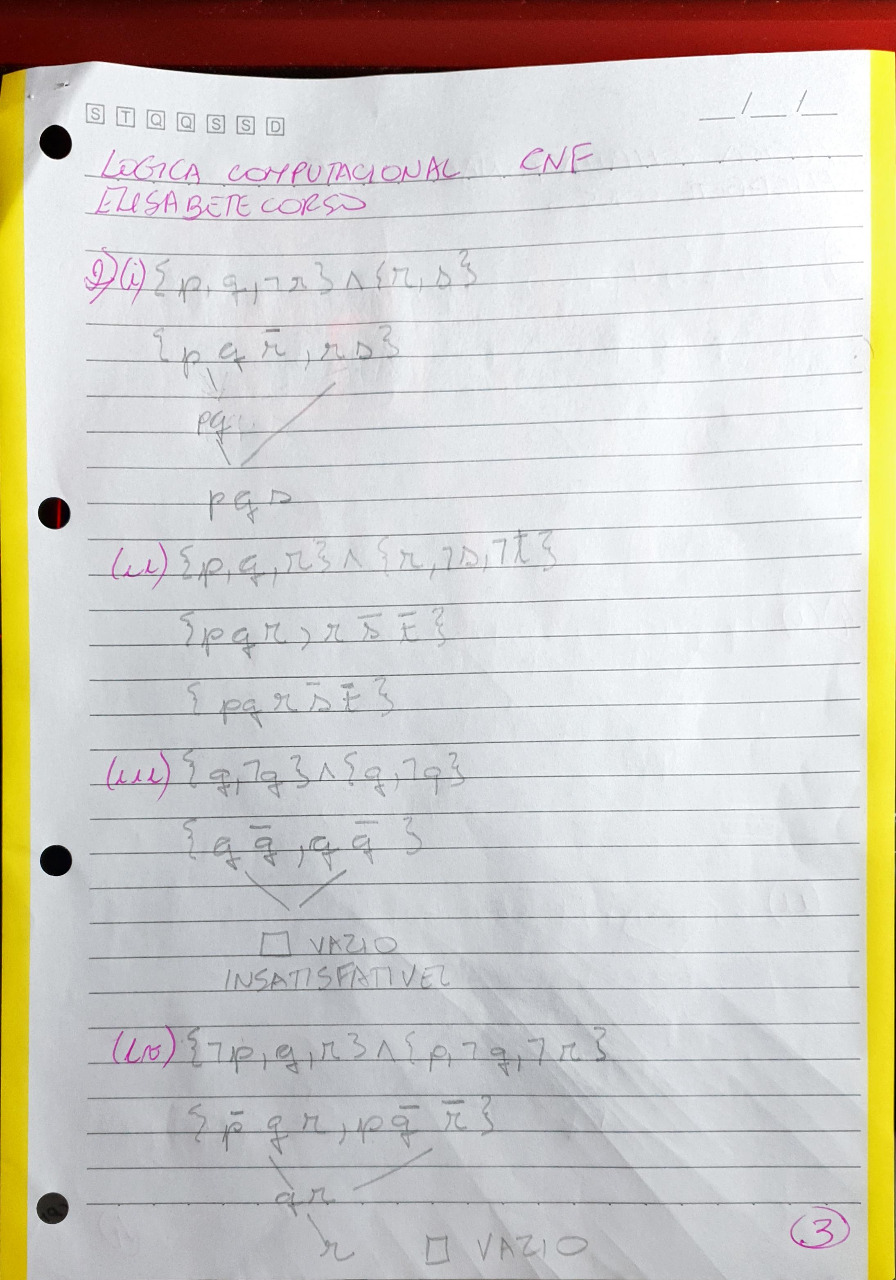 S T Q Q S S D
__/__/__
LOGICA COMPUTACIONAL CNF
ELISABETE CORSO
2)(i) {p, q, ¬r} ∧ {r, s}
{p q r̄, r s}
pq
p q s
(ii) {p, q, r} ∧ {r, ¬s, ¬t}
{p q r, r s̄ t̄}
{p q r s̄ t̄}
(iii) {q, ¬q} ∧ {q, ¬q}
{q q̄, q q̄}
□ VAZIO
INSATISFATIVEL
(iv) {¬p, q, r} ∧ {p, ¬q, ¬r}
{p̄ q r, p q̄ r̄}
q r
r □ VAZIO
3